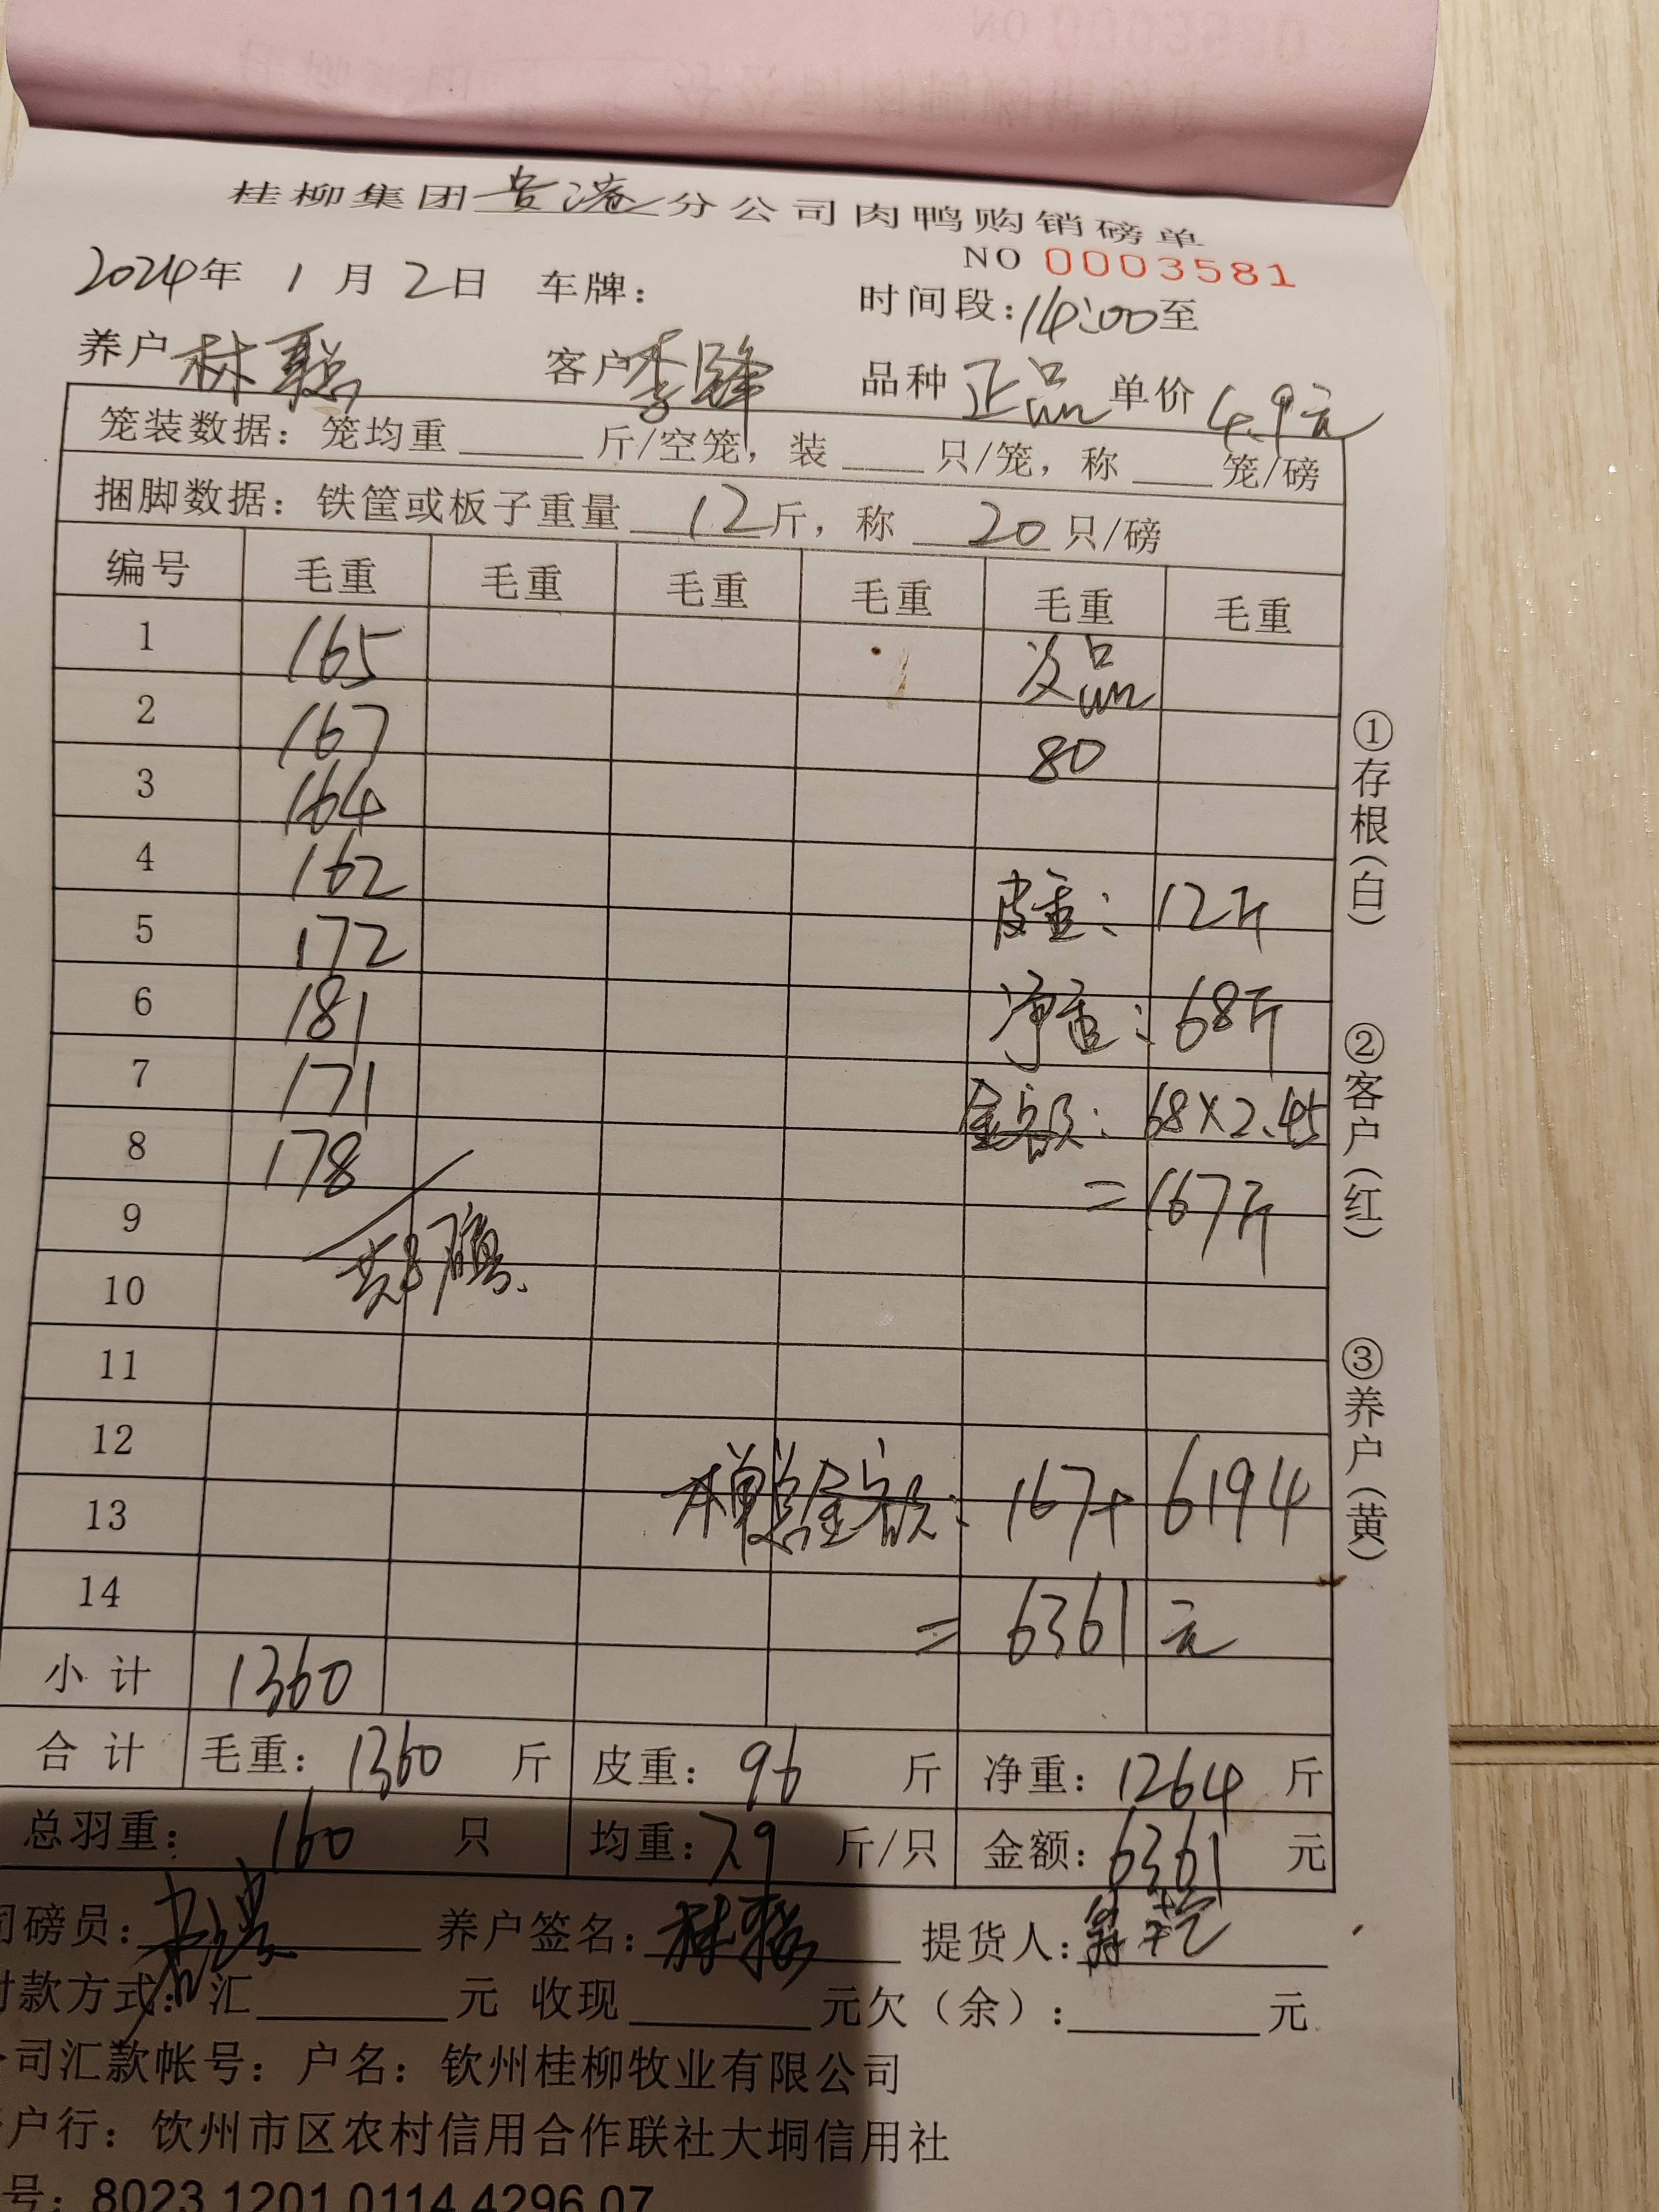 桂柳集团贵港分公司肉鸭购销磅单
NO 0003581
2024年 1 月 2 日 车牌: 时间段:14:00至
养户 林聪 客户 李锋 品种 正品 单价 4.9元
笼装数据: 笼均重 斤/空笼, 装 只/笼, 称 笼/磅
捆脚数据: 铁筐或板子重量 12 斤, 称 20 只/磅
编号 毛重 毛重 毛重 毛重 毛重 毛重
1 165 次品
2 167 80
3 164
4 162 皮重: 12斤
5 172 净重: 68斤
6 181 金额: 68×2.45
7 171 =167斤
8 178
9
10
11
12 本单总金额: 167+6194
13 =6361元
14
小计 1360
合计 毛重: 1360 斤 皮重: 96 斤 净重: 1264 斤
总羽重: 160 只 均重: 7.9 斤/只 金额: 6361 元
①存根(白)
②客户(红)
③养户(黄)
司磅员: 养户签名: 林聪 提货人:
付款方式: 汇 元 收现 元欠(余): 元
公司汇款帐号: 户名: 钦州桂柳牧业有限公司
户行: 饮州市区农村信用合作联社大垌信用社
号: 8023 1201 0114 4296 07